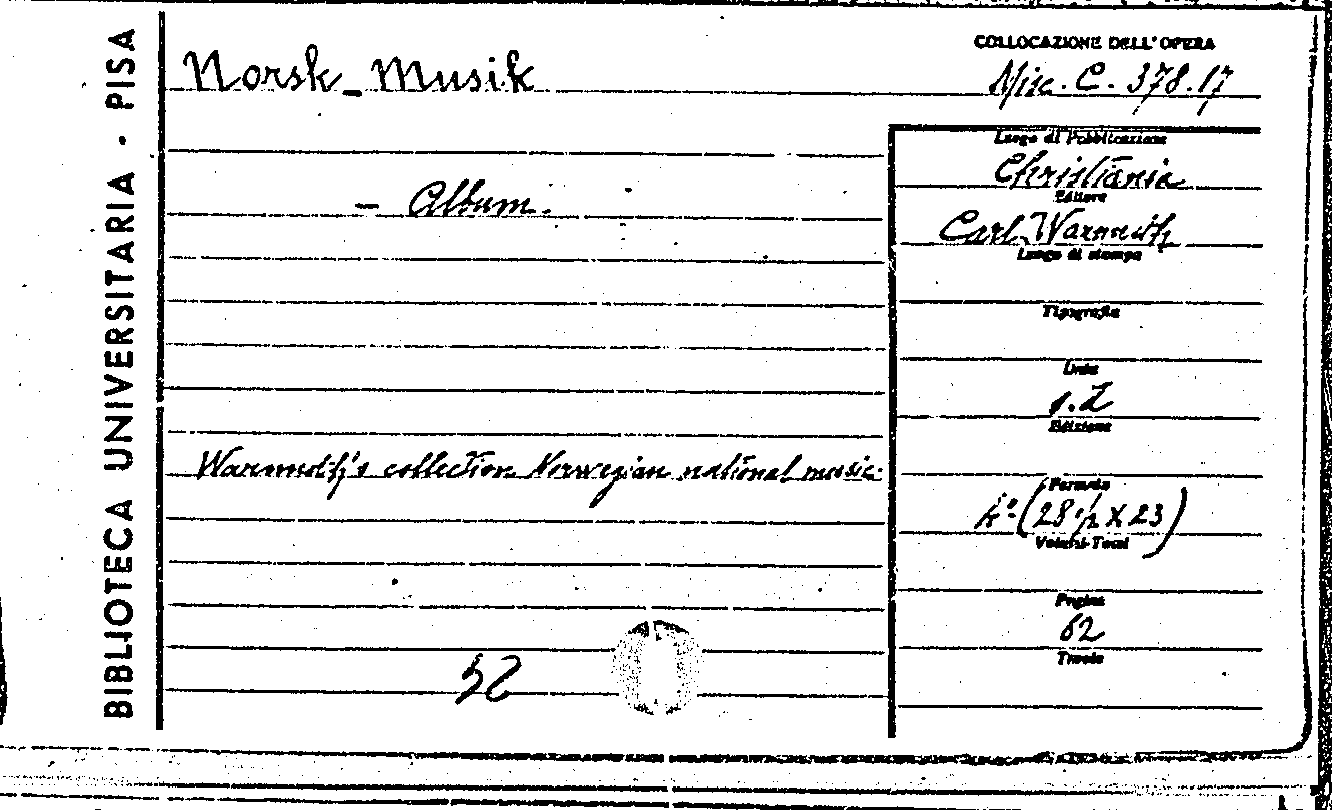 BIBLIOTECA UNIVERSITARIA - PISA
Norsk-Musik
- Album.
Warmuth's collection Norwegian national music.
52
COLLOCAZIONE DELL'OPERA
Misc. C. 378.17
Luogo di Pubblicazione
Christiania
Editore
Carl Warmuth
Luogo di stampa
Tipografia
Data
Edizione
Formato
4°(28 1/2 X 23)
Volumi-Tomi
Pagine
62
Tavole